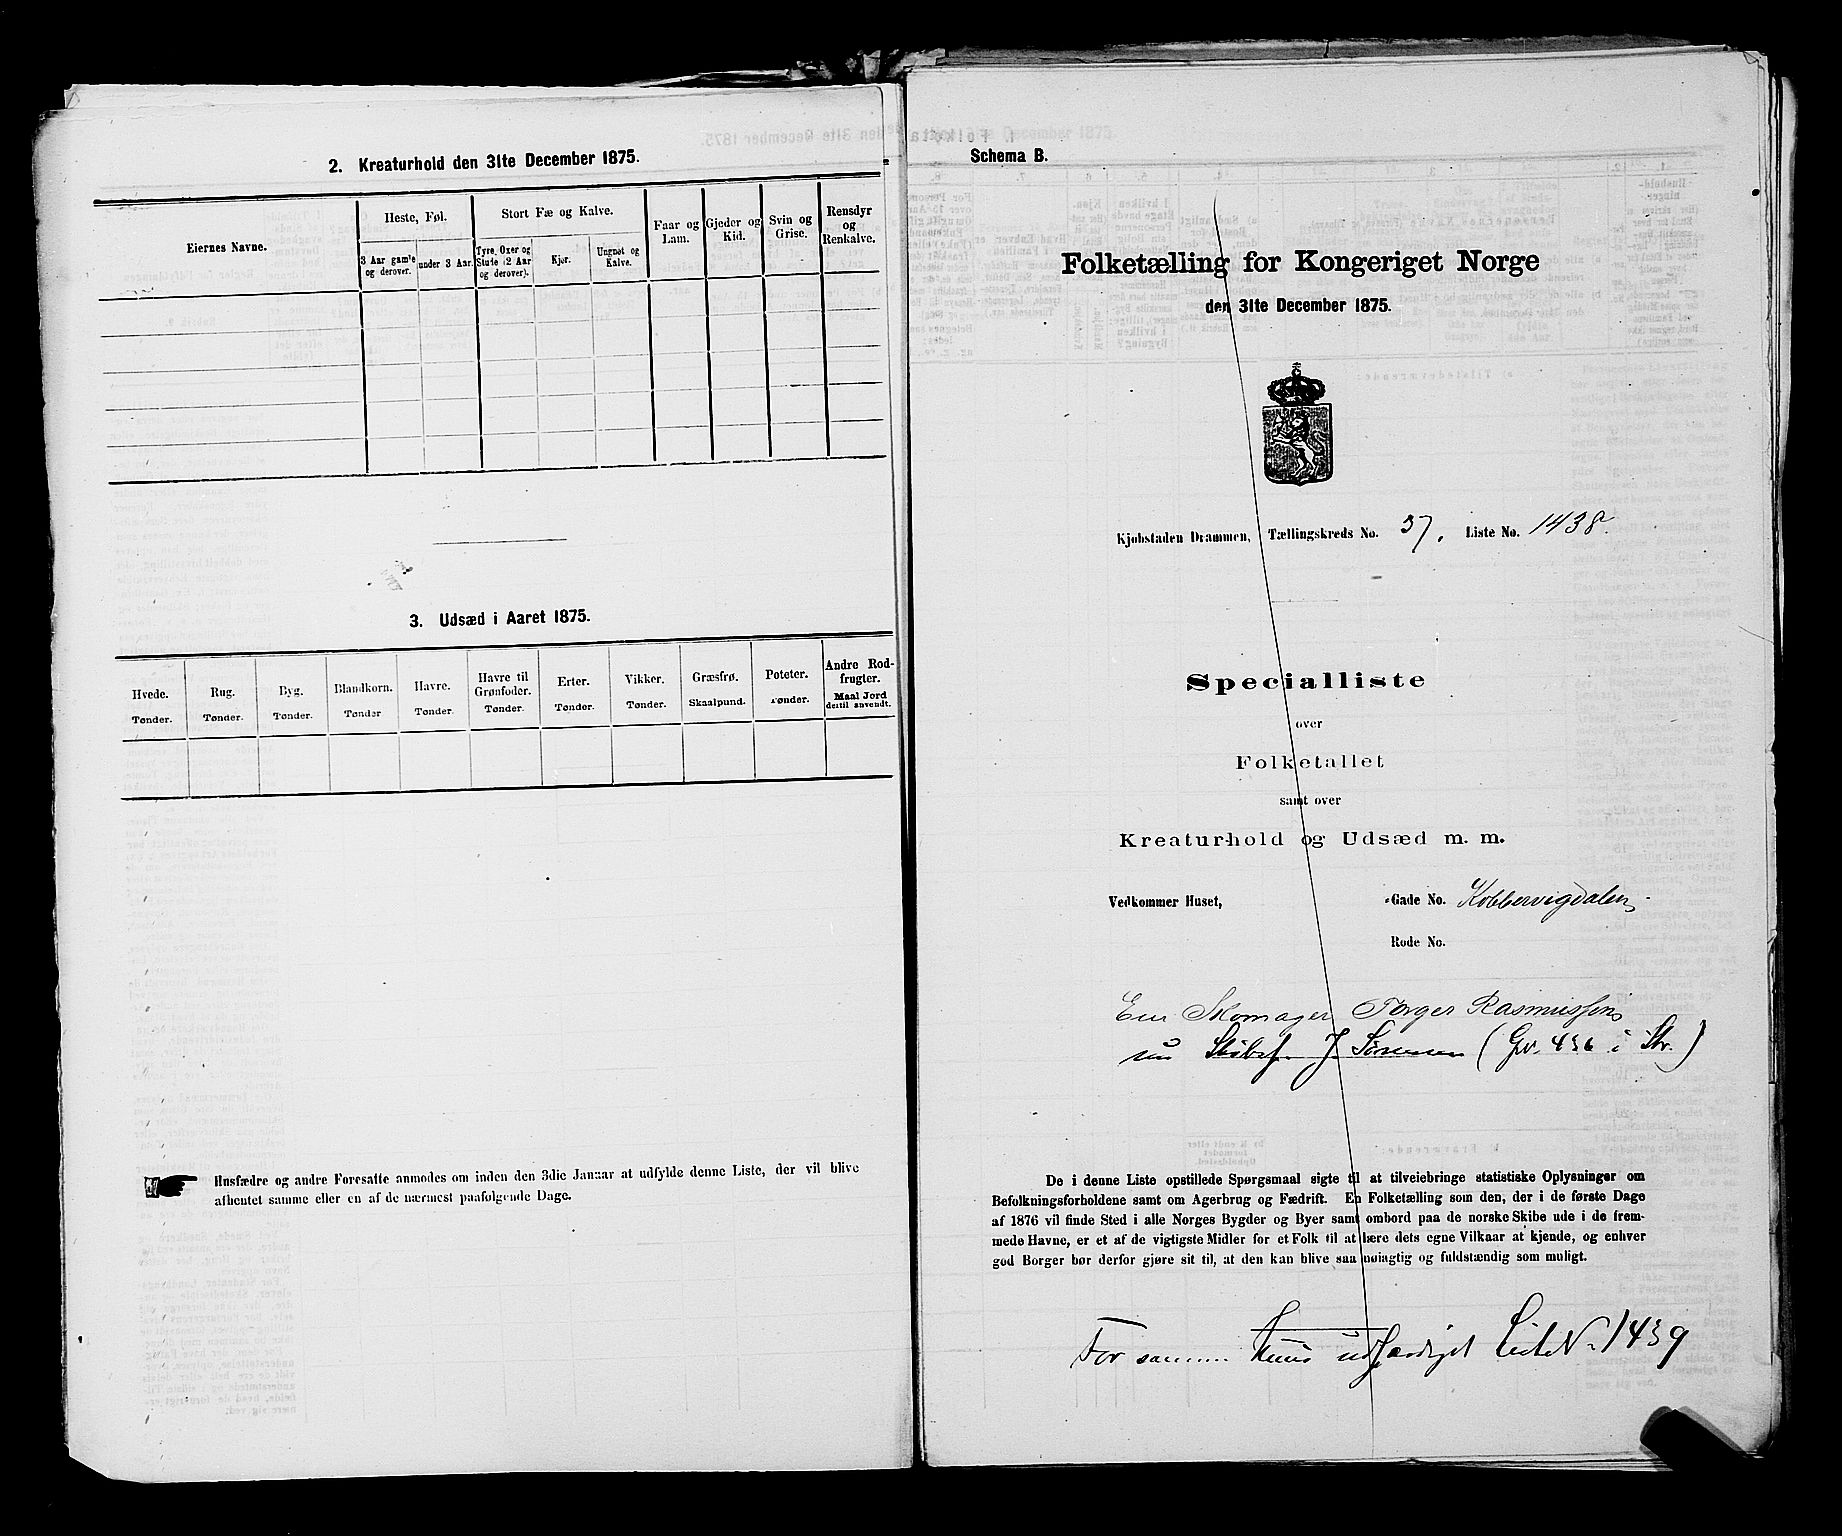 2. Kreaturhold den 31te December 1875.
Eiernes Navne.
Heste, Føl.
Stort Fæ og Kalve.
Faar og Lam.
Gjeder og Kid.
Svin og Grise.
Rensdyr og Renkalve.
3 Aar gamle og derover.
under 3 Aar.
Tyre, Oxer og Stude (2 Aar og derover).
Kjør.
Ungnøt og Kalve.
3. Udsæd i Aaret 1875.
Hvede.
Rug.
Byg.
Blandkorn.
Havre.
Havre til Grønfoder.
Erter.
Vikker.
Græsfrø.
Poteter.
Andre Rodfrugter.
Tønder.
Tønder.
Tønder.
Tønder
Tønder.
Tønder.
Tønder.
Tønder.
Skaalpund.
Tønder.
Maal Jord dertil anvendt.
Husfædre og andre Foresatte anmodes om inden den 3die Januar at udfylde denne Liste, der vil blive
afhentet samme eller en af de nærmest paafølgende Dage.
Schema B.
Folketælling for Kongeriget Norge
den 31te December 1875.
Kjøbstaden Drammen, Tællingskreds No. 37. Liste No. 1438.
Specialliste
over
Folketallet
samt over
Kreaturhold og Udsæd m. m.
Vedkommer Huset, Gade No. Kobbervigdalen
Rode No.
Eier Skomager Torger Rasmussen
nu J. Sørensen (Gv. 436 i Str.)
De i denne Liste opstillede Spørgsmaal sigte til at tilveiebringe statistiske Oplysninger om
Befolkningsforholdene samt om Agerbrug og Fædrift. En Folketælling som den, der i de første Dage
af 1876 vil finde Sted i alle Norges Bygder og Byer samt ombord paa de norske Skibe ude i de frem-
mede Havne, er et af de vigtigste Midler for et Folk til at lære dets egne Vilkaar at kjende, og enhver
god Borger bør derfor gjøre sit til, at den kan blive saa nøiagtig og fuldstændig som muligt.
For samme Huus udfærdiget Liste N. 1439